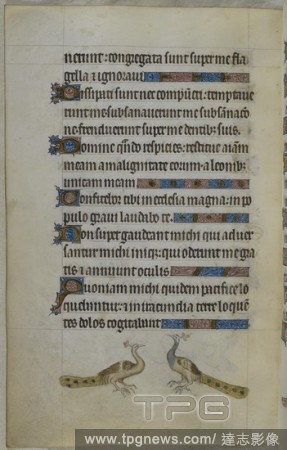 nerunt: congregata sunt super me fla
gella et ignoravi
Dissipati sunt nec compuncti: temptave
runt me subsannaverunt me subsannatio
ne frenduerunt super me dentibus suis.
Domine quando respicies: restitue animam
meam a malignitate eorum: a leonibus
unicam meam.
Confitebor tibi in ecclesia magna: in po
pulo gravi laudabo te.
Non supergaudeant michi qui adver
santur michi inique: qui oderunt me gra
tis et annuunt oculis
Quoniam michi quidem pacifice lo
quebantur: et in iracundia terre loquen
tes dolos cogitabant
TPG
www.tpgnews.com/ 達志影像